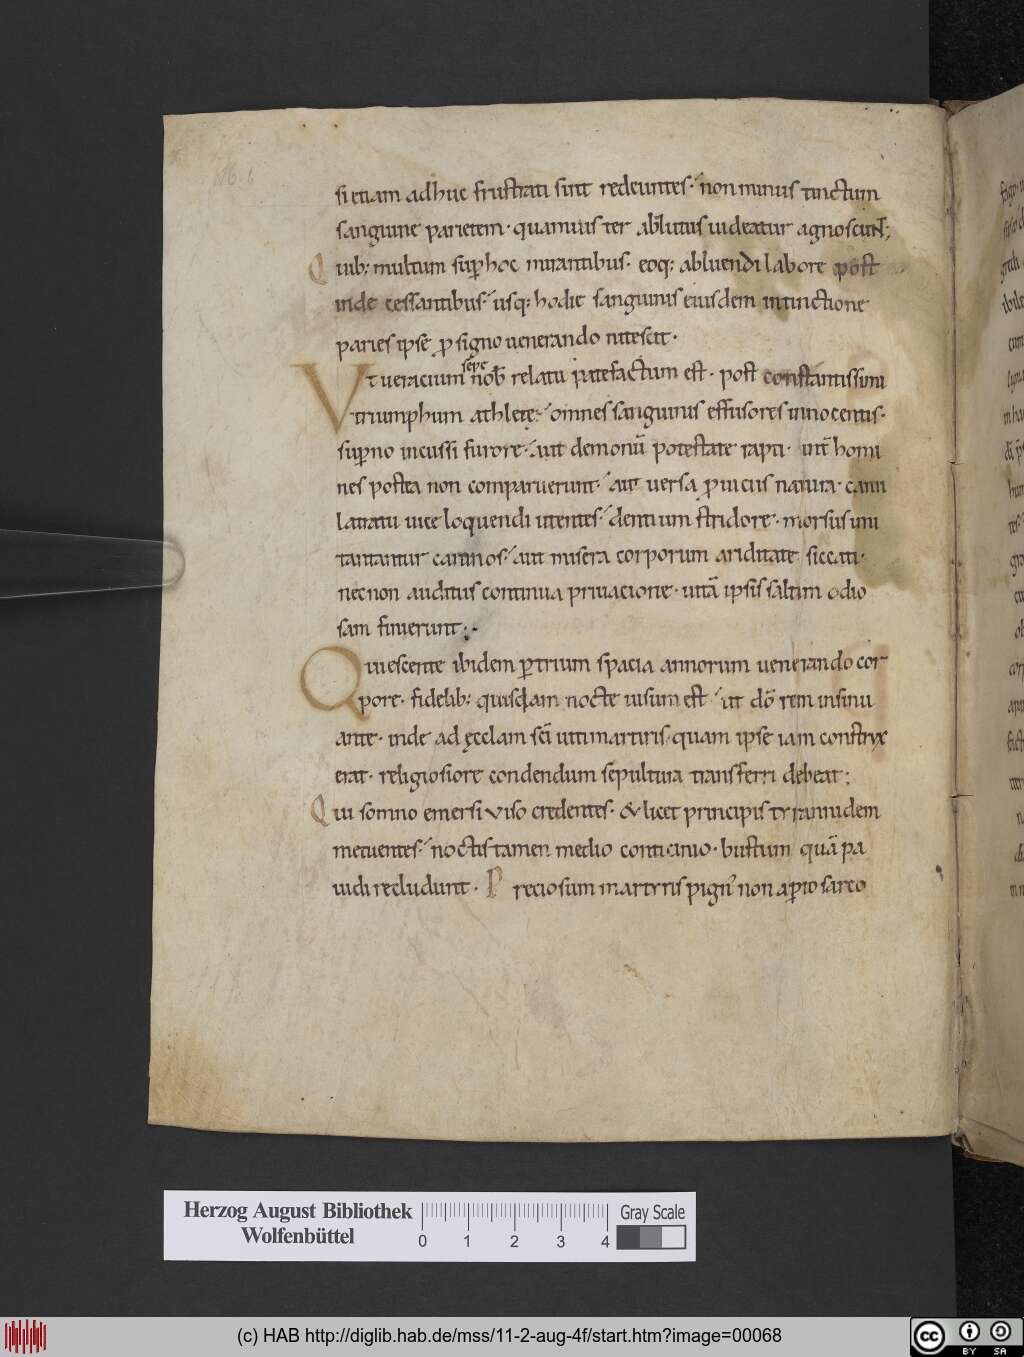 si etiam adhuc frustrati sint redeuntes · non minus tinctum
sanguine parietem · quamuis ter ablutus uideatur agnoscunt;
Quib; multum sup hoc mirantibus · eoq; abluendi labore post
inde cessantibus · usq; hodie sanguinis eiusdem intinctione
paries ipse p signo uenerando nitescit ·
Vt ueracium sepe nob relatu patefactum est · post constantissimi
triumphum athletę · omnes sanguinis effusores innocentis ·
supno incussi furore · aut demonū potestate rapti · int homi
nes postea non comparuerunt · aut uersa puicus natura · canū
latratu uice loquendi utentes · dentium stridore · morsus imi
tantantur caninos · aut misera corporum ariditate siccati ·
necnon auditus continua priuacione · uitā ipsis saltim odio
sam finierunt ;
Quiescente ibidem p trium spacia annorum uenerando cor
pore · fidelib; quisdam nocte uisum est · ut dō rem insinu
ante · inde ad ęcclam sci uiti martiris · quam ipse iam construx
erat · religiosiore condendum sepultura transferri debeat ;
Qui somno emersi viso credentes · & licet principis tyrannidem
metuentes · noctis tamen medio conticinio · bustum quā pa
uidi recludunt · Preciosum martyris pign' non aptio sarco
Herzog August Bibliothek
Wolfenbüttel
0 1 2 3 4
Gray Scale
(c) HAB http://diglib.hab.de/mss/11-2-aug-4f/start.htm?image=00068
cc BY SA